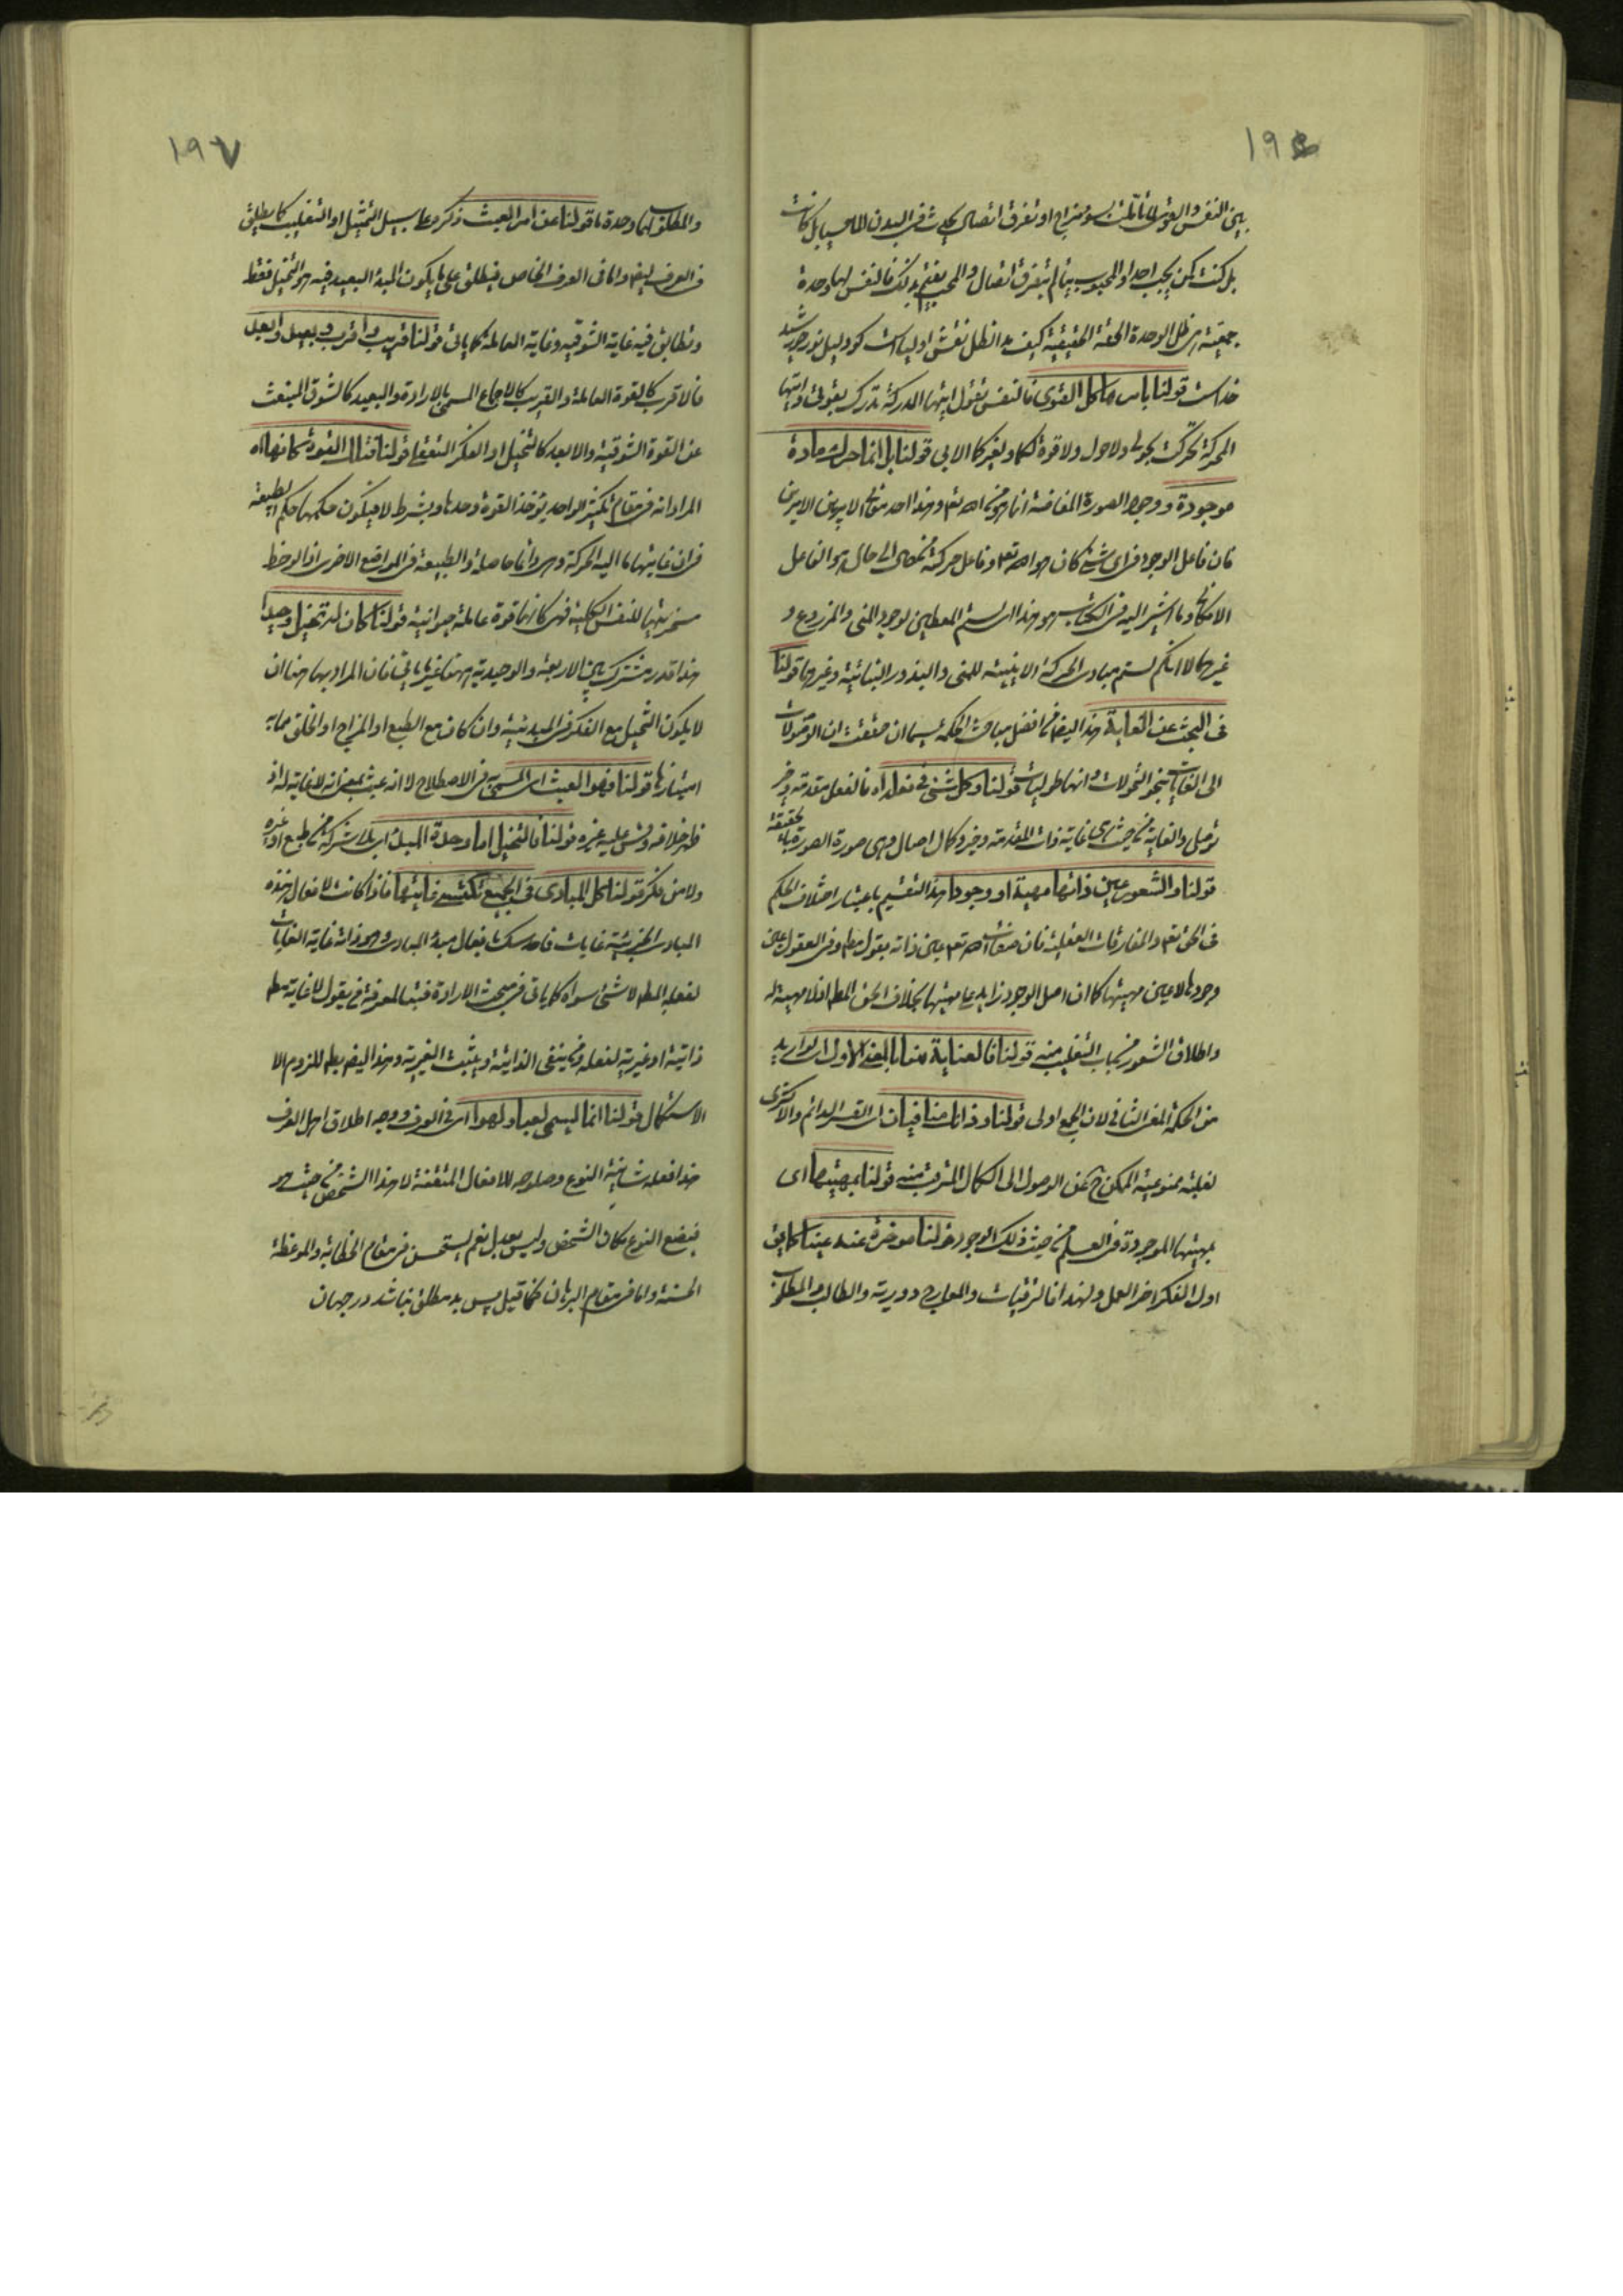 ١٩٤
بين النفس والقوى لما تألمت بسوء مزاج او تفرق اتصال يحدث في البدن الما حسيا بل كانت
بل كنت كمن يحب احدا والمحبوب يتألم بتفرق اتصال والمحب يغتم بذلك فالنفس لها وحدة
جمعية هي ظل الوحدة الحقة الحقيقية كيف مد الظل نقش اولياست كو دليل نور خورشيد
خداست قولنا يا من هو كل القوى فالنفس تقول ايتها المدركة تدرك بقوتي وايتها
المحركة تحركت بحولي ولا حول ولا قوة لكما ولغيركما الا بي قولنا بل انما حرك مادة
موجودة ووجود الصورة المفاضة انما هو من الله تعالى وهذا احد مفاتح الامر بين الامرين
فان فاعل الوجود في اي شيء كان هو الله تعالى وفاعل حركته من حال الى حال هو الفاعل
الامكاني وما اشير اليه في الكتاب هو هذا الستم المعطين لوجود المني والمزروع و
غيرهما لا انكم لستم مبادي الحركة الاينية للمني والبذور النباتية وغيرها قولنا
في البحث عن الغاية هذا ايضا من افضل مباحث الحكمة سيما ان حققت ان الوصولات
الى الغايات بنحو التحولات وانها طوليات قولنا وكل شيء في نقله اه فالفعل مقدمة وخير
توصلي والغاية من حيث هي غاية ذات المقدمة وخير وكمال اصالي وهي صورة الصورة بالحقيقة
قولنا والشعور عين ذاتها مهية او وجودا هذا التقسيم باعتبار اختلاف الحكم
في الحق تعالى والمفارقات العقلية فان صفات الله تعالى عين ذاته بقول مطلق وفي العقول عين
وجودها لا عين مهيتها كما ان اصل الوجود زايد على مهيتها بخلاف الحق المطلق اذ لا مهية له
واطلاق الشعور من باب التغليب منه قولنا فالعناية هنا بالمعنى الاول اي لو اريد
من الحكمة المعنى الثاني لان الجمع اولى قولنا وذانك منافيان اي القسر الدائم والاكثري
لغلبة ممنوعية الممكن ح عن الوصول الى الكمال المترقب منه قولنا بمهيتها اي
بمهيتها الموجودة في العلم من حيث ذلك الوجود قولنا موخرة عند عينا كما يق
اول الفكر اخر العمل ولهذا فالترقيات والمعارج دورية والطالب والمطلوب
١٩٧
والمطلوب لهما وحدة ما قولنا عن امر العبث ذكره على سبيل التمثيل او التغليب كما يطلق
في العرف ايضا واما في العرف الخاص فيطلق على ما يكون المبدء البعيد فيه هو التخيل فقط
وتطابق فيه غاية الشوقية وغاية العاملة كما ياتي قولنا قريب واقرب وبعيد وابعد
فالاقرب كالقوة العاملة والقريب كالاجماع المسمى بالارادة والبعيد كالشوق المنبعث
عن القوة الشوقية والابعد كالتخيل او الفكر التعقلي قولنا فتلك القوة كانها اه
المراد انه في مقام تكثير الواحد يؤخذ القوة وحدها وبشرط لا فيكون حكمها حكم الطبيعة
في ان غايتها ما اليه الحركة وهي دائما حاصلة والطبيعة في المواضع الاخرى اذا لوحظ
مسخريتها للنفس الكلية فهي كانها قوة عاملة حيوانية قولنا كان له تخيل وحيدا
هذا قدر مشترك بين الاربعة والوحيدية ههنا غير ما ياتي فان المراد بها هنا ان
لا يكون التخيل مع الفكر في المبدئية وان كان مع الطبع او المزاج او الخلق مما به
امتيازها قولنا فهو العبث اي المسمى به في الاصطلاح لا انه عبث بمعنى انه لا غاية له اذ
ظهر خلافه وقس عليه غيره قولنا فالتخيل اما وحده المبدء اي بلا شركة من طبع او غيره
ولا من فكر قولنا كل المبادي في الجميع تكتسي غاياتها فاذا كانت لافعال هذه
المبادي الجزئية غايات فما حدسك بافعال مبدء المبادي وهو ذاته غاية الغايات
لفعله المطلق لا شيء سواه كما ياتي في مبحث الارادة فتبا لمعرفة من يقول لا غاية مطلقا
ذاتية او غيرية لفعله ومن ينفي الذاتية ويثبت الغيرية وهذا ايضا يبطل للزوم الا
الاستكمال قولنا انما ليسمى لعبا ولهوا اي في العرف ووجه اطلاق اهل العرف
هذا فعله شانية النوع وصلوحه للافعال المتقنة لا هذا الشخص من حيث هو
فيضع النوع مكان الشخص وليس بعدل نعم يستحسن في مقام الخطابة والموعظة
الحسنة واما في مقام البرهان فكما قيل پس بد مطلق نباشد در جهان